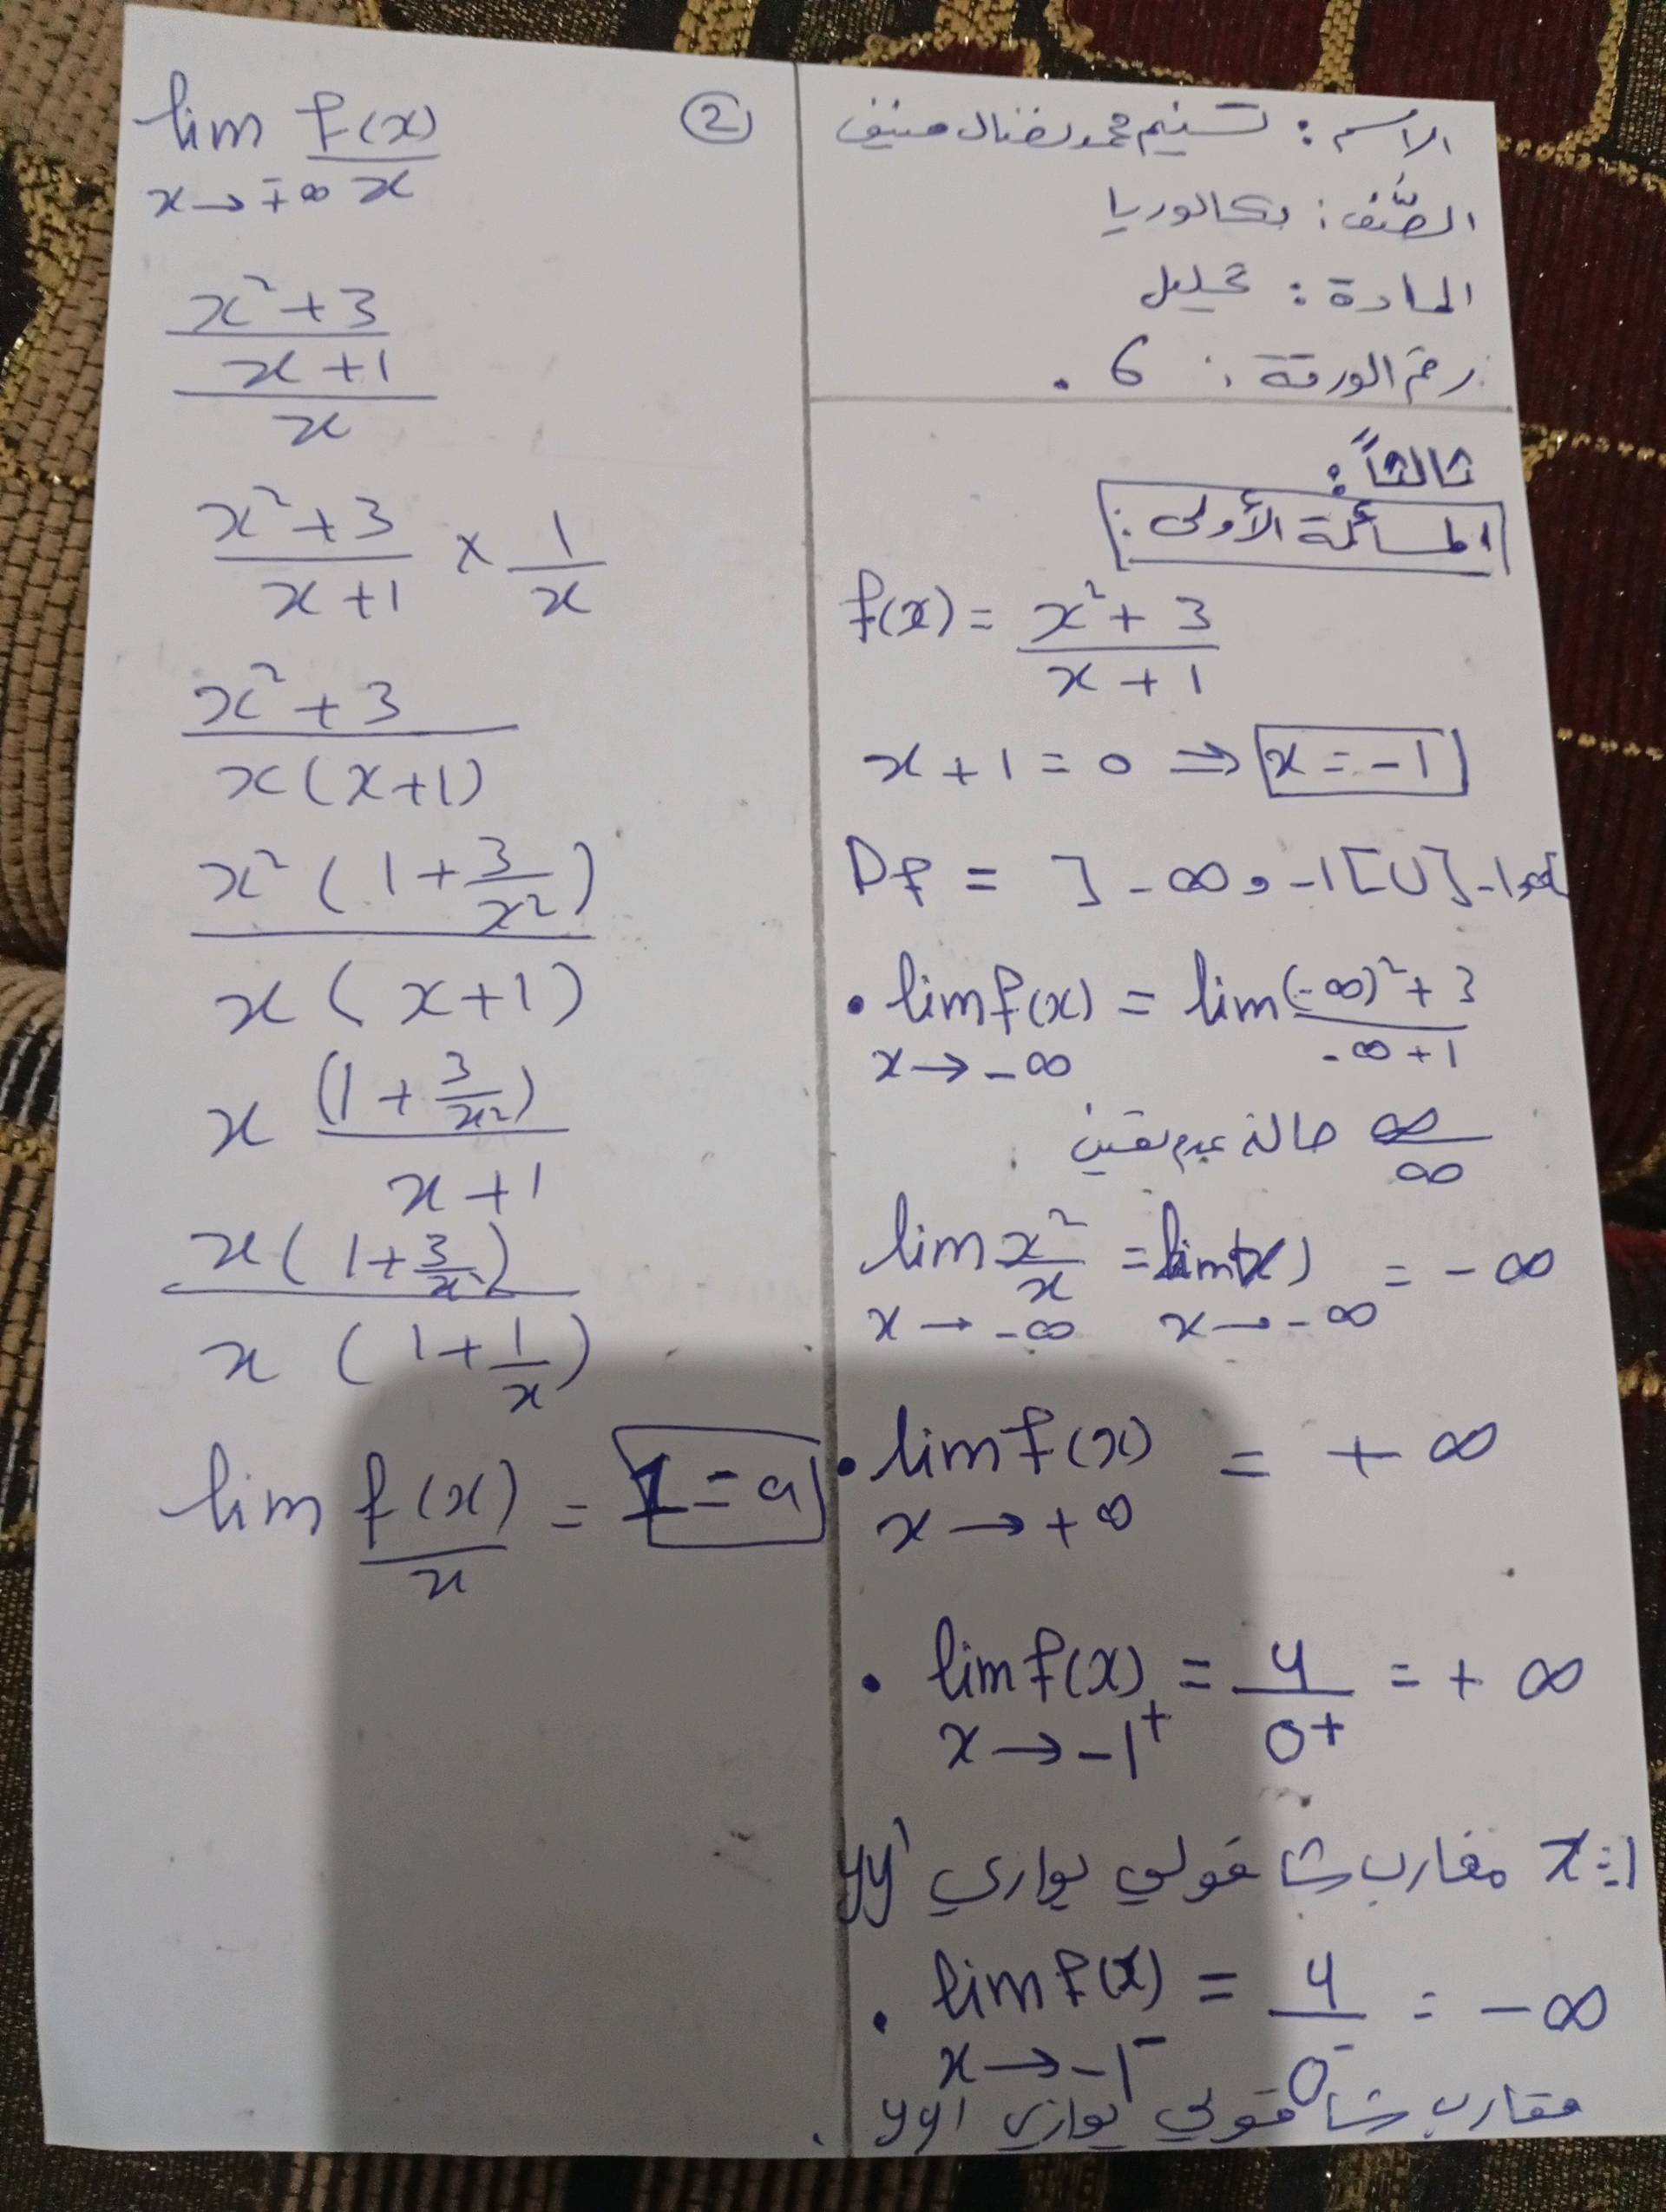 الاسم : تسنيم محمد نضال منيف
الصّف : بكالوريا
المادة : تحليل
رقم الورقة : 6 .
ثالثاً :
المسألة الأولى :
f(x) = \frac{x²+3}{x+1}
x+1=0 ⇒ x=-1
Df = ]-∞, -1[ U ]-1, +∞[
• lim f(x) = lim \frac{(-∞)²+3}{-∞+1}
x→-∞
\frac{∞}{∞} حالة عدم تعيين
lim \frac{x²}{x} = lim(x) = -∞
x→-∞ x→-∞
• lim f(x) = +∞
x→+∞
• lim f(x) = \frac{4}{0+} = +∞
x→-1⁺
x=-1 مقارب شاقولي يوازي yy'
• lim f(x) = \frac{4}{0⁻} = -∞
x→-1⁻
مقارب شاقولي يوازي yy' .
②
lim \frac{f(x)}{x}
x→∓∞
\frac{\frac{x²+3}{x+1}}{x}
\frac{x²+3}{x+1} × \frac{1}{x}
\frac{x²+3}{x(x+1)}
\frac{x²(1+\frac{3}{x²})}{x(x+1)}
x \frac{(1+\frac{3}{x²})}{x+1}
\frac{x(1+\frac{3}{x²})}{x(1+\frac{1}{x})}
lim \frac{f(x)}{x} = 1 = a